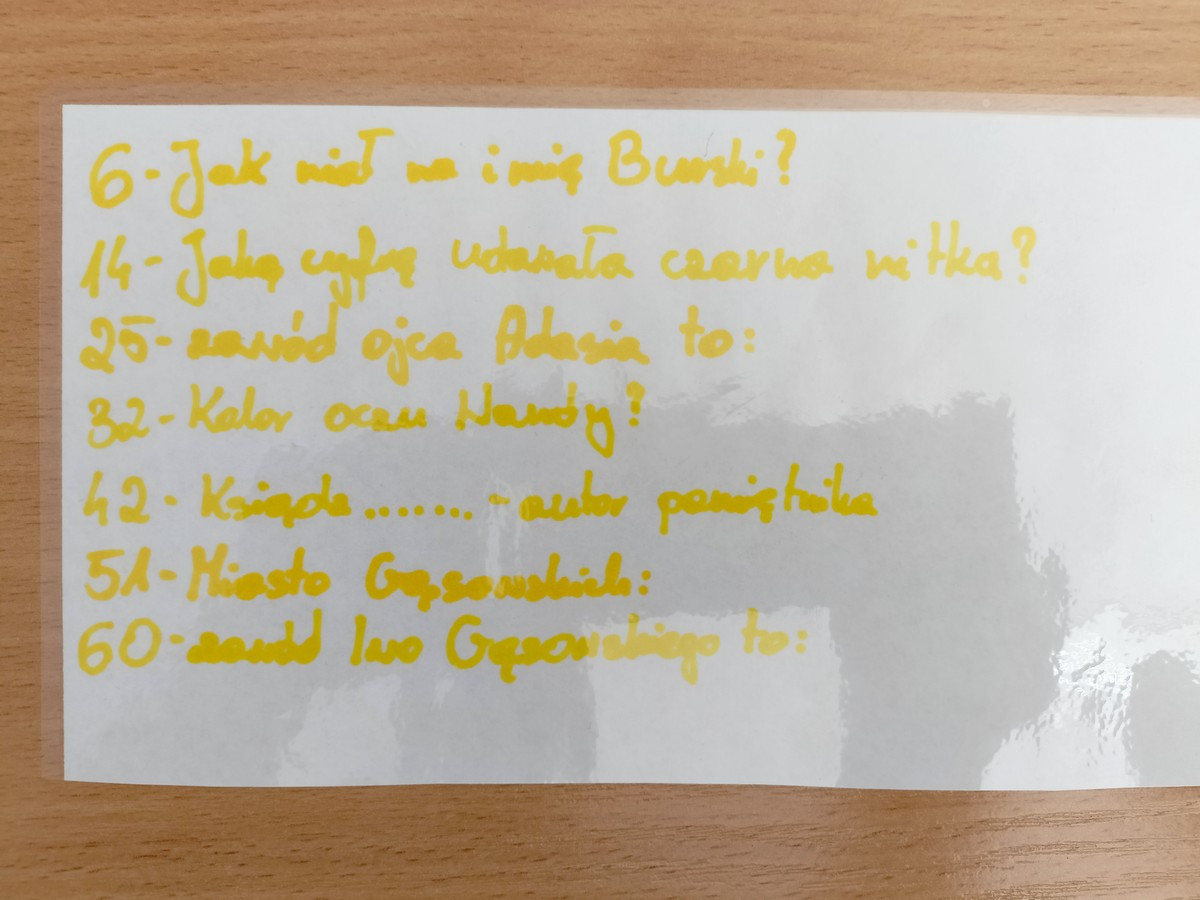 6-Jak miał na imię Burski?
14-Jaką cyfrę udawała czarna nitka?
25-zawód ojca Adasia to:
32-Kolor oczu Wandy?
42-Ksiądz.......-autor pamiętnika
51-Miasto Gąsowskich:
60-zawód Iwo Gąsowskiego to: